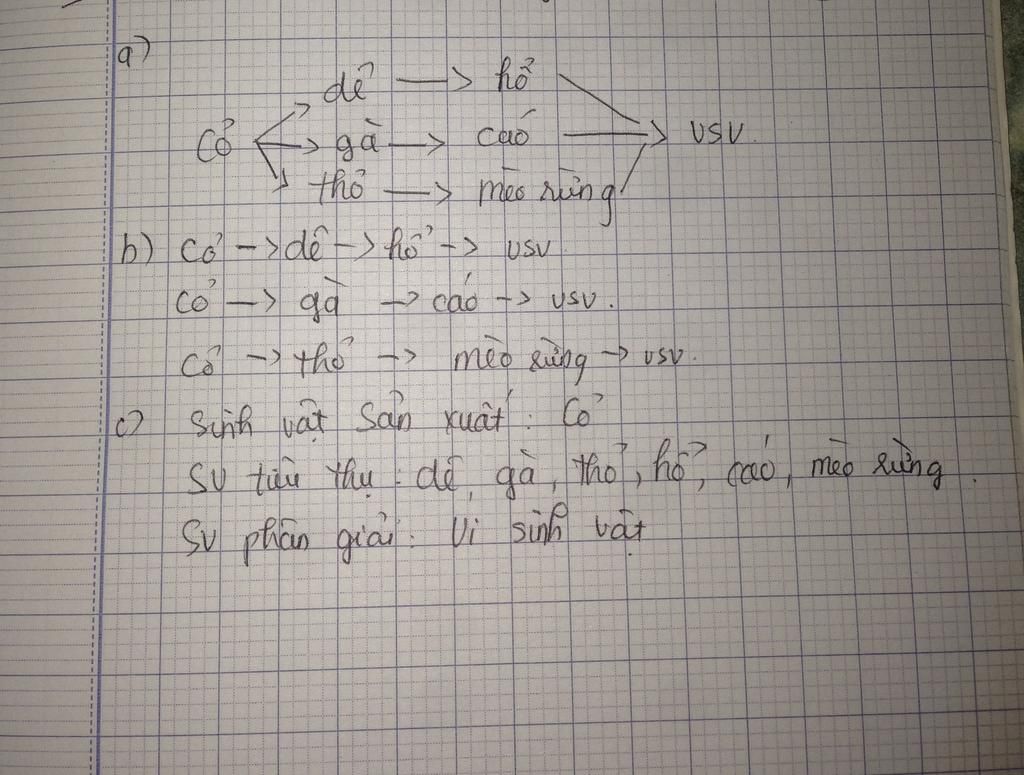 a)
dê → hổ
Cỏ → gà → cáo → VSV.
thỏ → mèo rừng
b) Cỏ → dê → hổ → VSV
Cỏ → gà → cáo → VSV.
Cỏ → thỏ → mèo rừng → VSV.
c) Sinh vật sản xuất : Cỏ
SV tiêu thụ : dê, gà, thỏ, hổ, cáo, mèo rừng.
SV phân giải : Vi sinh vật